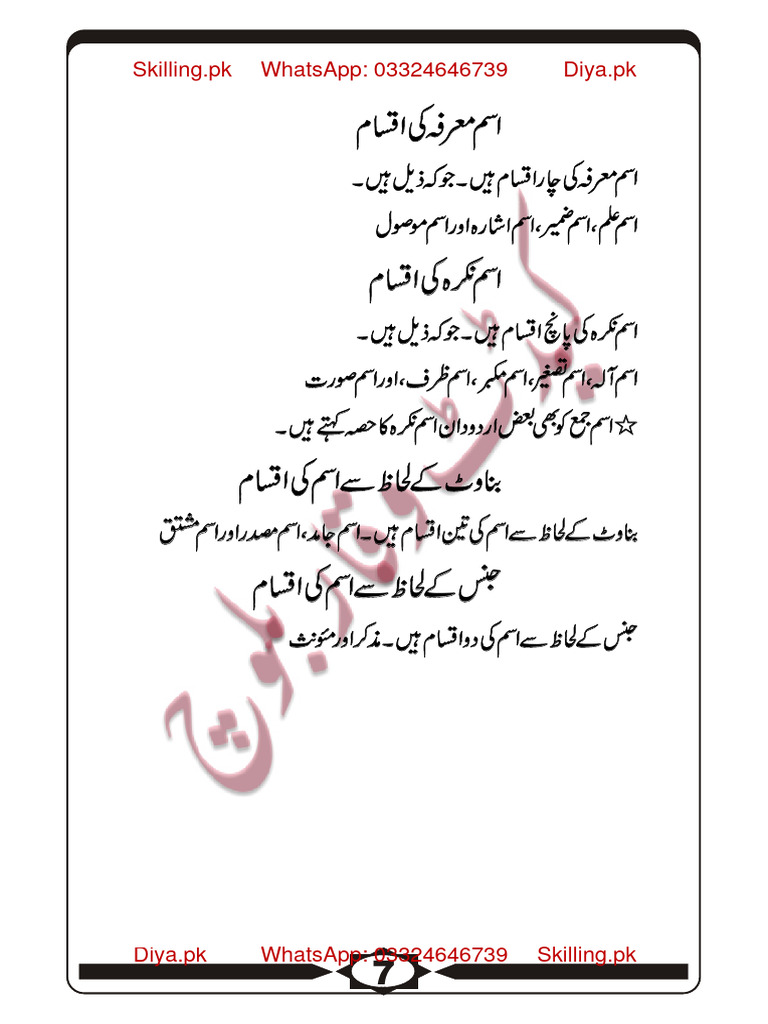 Skilling.pk WhatsApp: 03324646739 Diya.pk
اسم معرفہ کی اقسام
اسم معرفہ کی چار اقسام ہیں۔ جو کہ ذیل ہیں۔
اسم علم، اسم ضمیر، اسم اشارہ اور اسم موصول
اسم نکرہ کی اقسام
اسم نکرہ کی پانچ اقسام ہیں۔ جو کہ ذیل ہیں۔
اسم آلہ، اسم تصغیر، اسم مکبر، اسم ظرف، اور اسم صورت
☆ اسم جمع کو بھی بعض اردو دان اسم نکرہ کا حصہ کہتے ہیں۔
بناوٹ کے لحاظ سے اسم کی اقسام
بناوٹ کے لحاظ سے اسم کی تین اقسام ہیں۔ اسم جامد، اسم مصدر اور اسم مشتق
جنس کے لحاظ سے اسم کی اقسام
جنس کے لحاظ سے اسم کی دو اقسام ہیں۔ مذکر اور مئونث
وقار بلوچ
Diya.pk WhatsApp: 03324646739 Skilling.pk
7